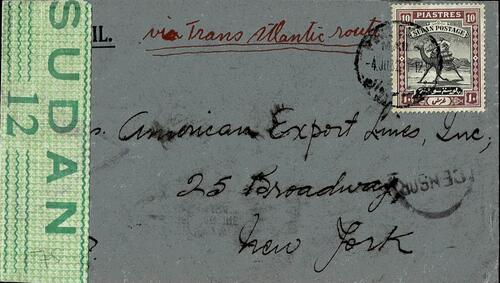 SUDAN
12
IL.
via Trans Atlantic route
10 PIASTRES 10
SUDAN POSTAGE
s. American Export Lines, Inc,
25 Broadway,
New York
CENSOR